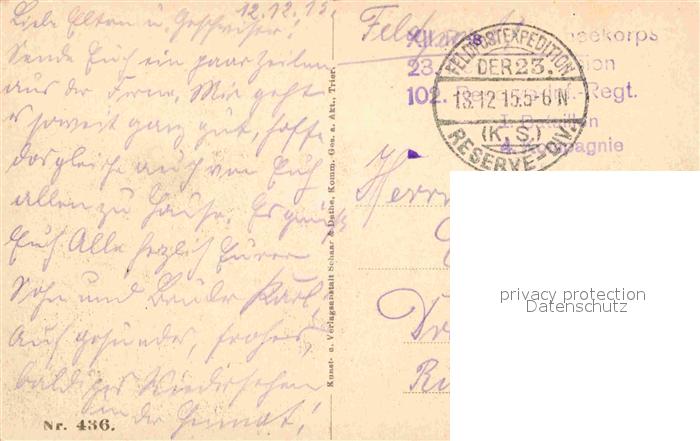 12.12.15.
Liebe Eltern u. Geschwister!
Sende Euch ein paar Zeilen
aus der Ferne. Mir geht
es soweit ganz gut, hoffe
dasgleiche auch von Euch
allen zu Hause. Es grüßt
Euch Alle herzlich Eurer
Sohn und Bruder Karl,
Auf gesundes, frohes,
baldiges Wiedersehen
in der Heimat!
Nr. 436.
Kunst- u. Verlagsanstalt Schaar & Dathe, Komm. Ges. a. Akt., Trier.
XII.
23.
102.
-Regt.
1.
4. Kompagnie
FELDPOSTEXPEDITION
DER 23.
13.12 15.5-6 N
(K. S.)
RESERVE-DIV.
Herrn
privacy protection
www.oldthing.de